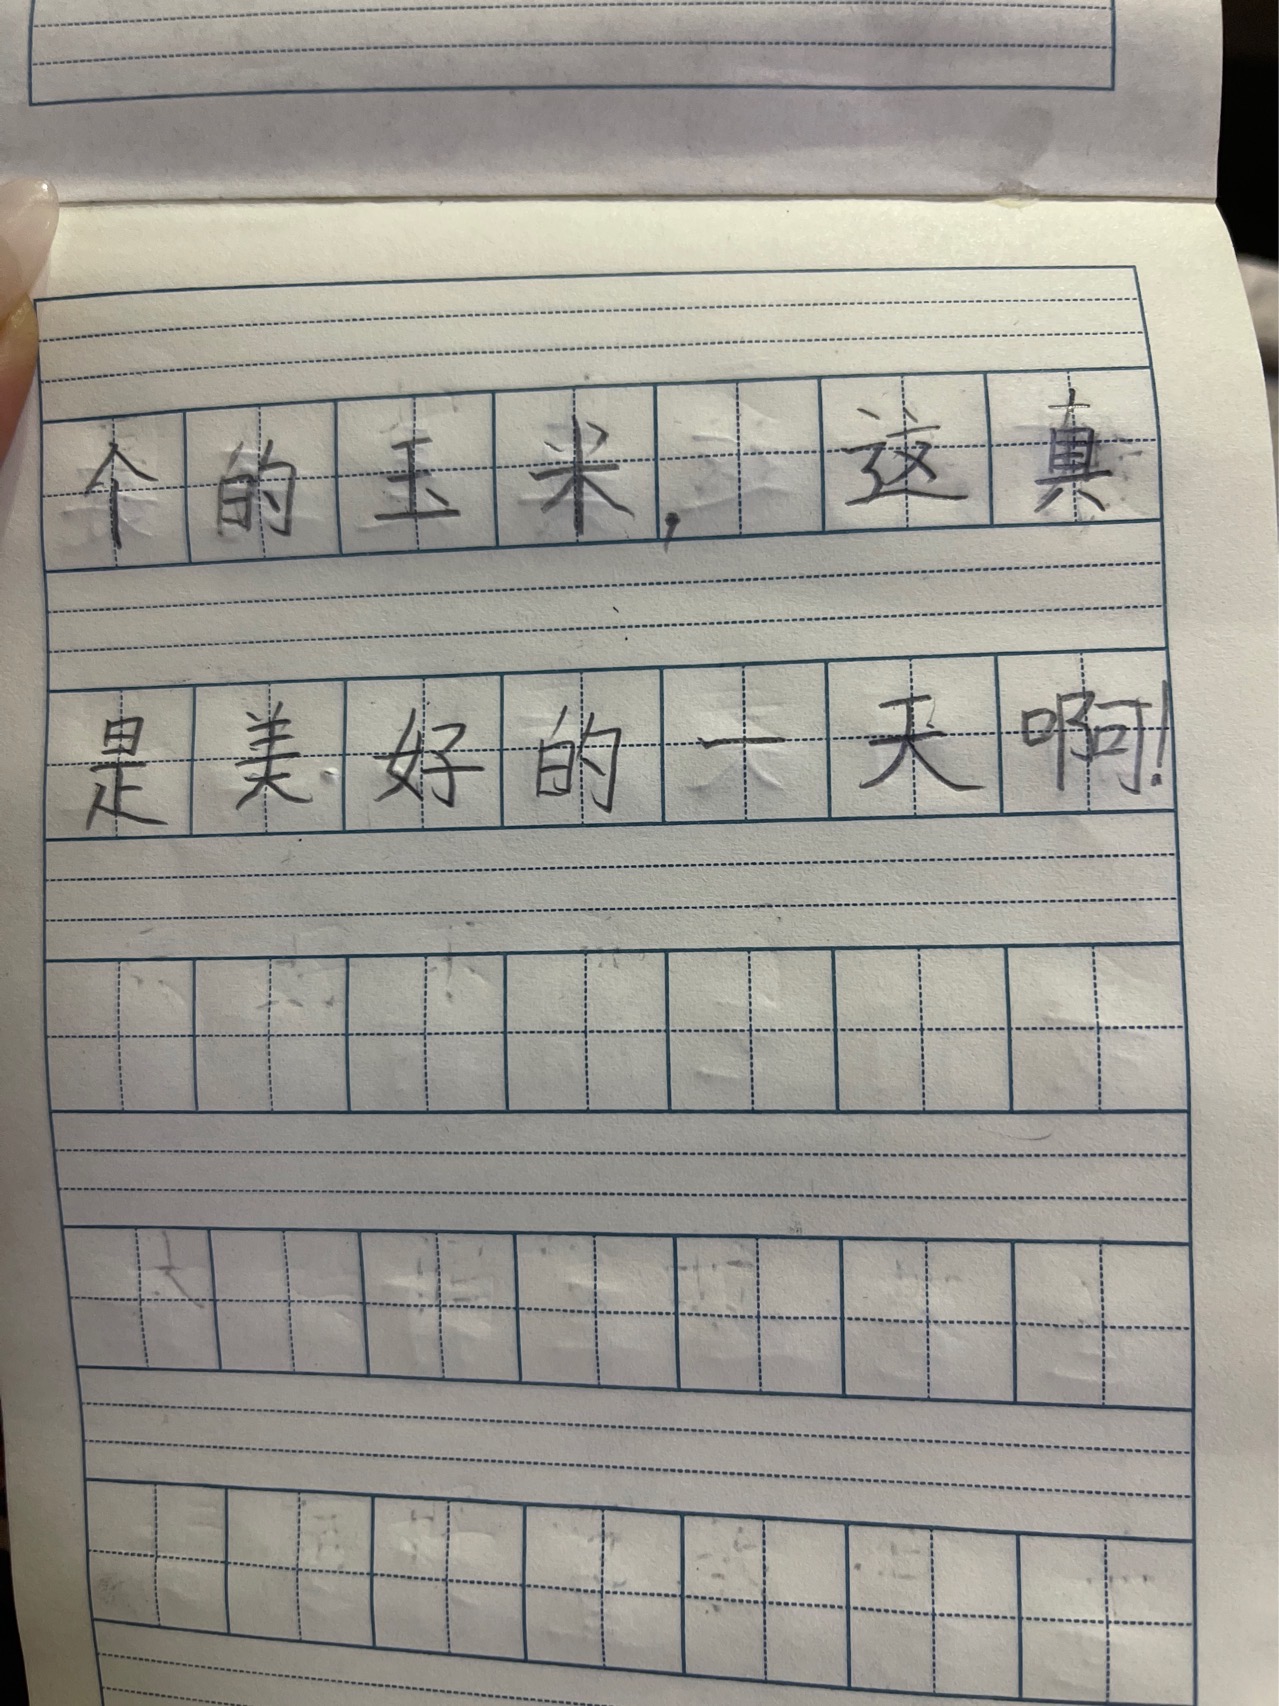 个的玉米,这真
是美好的一天啊!